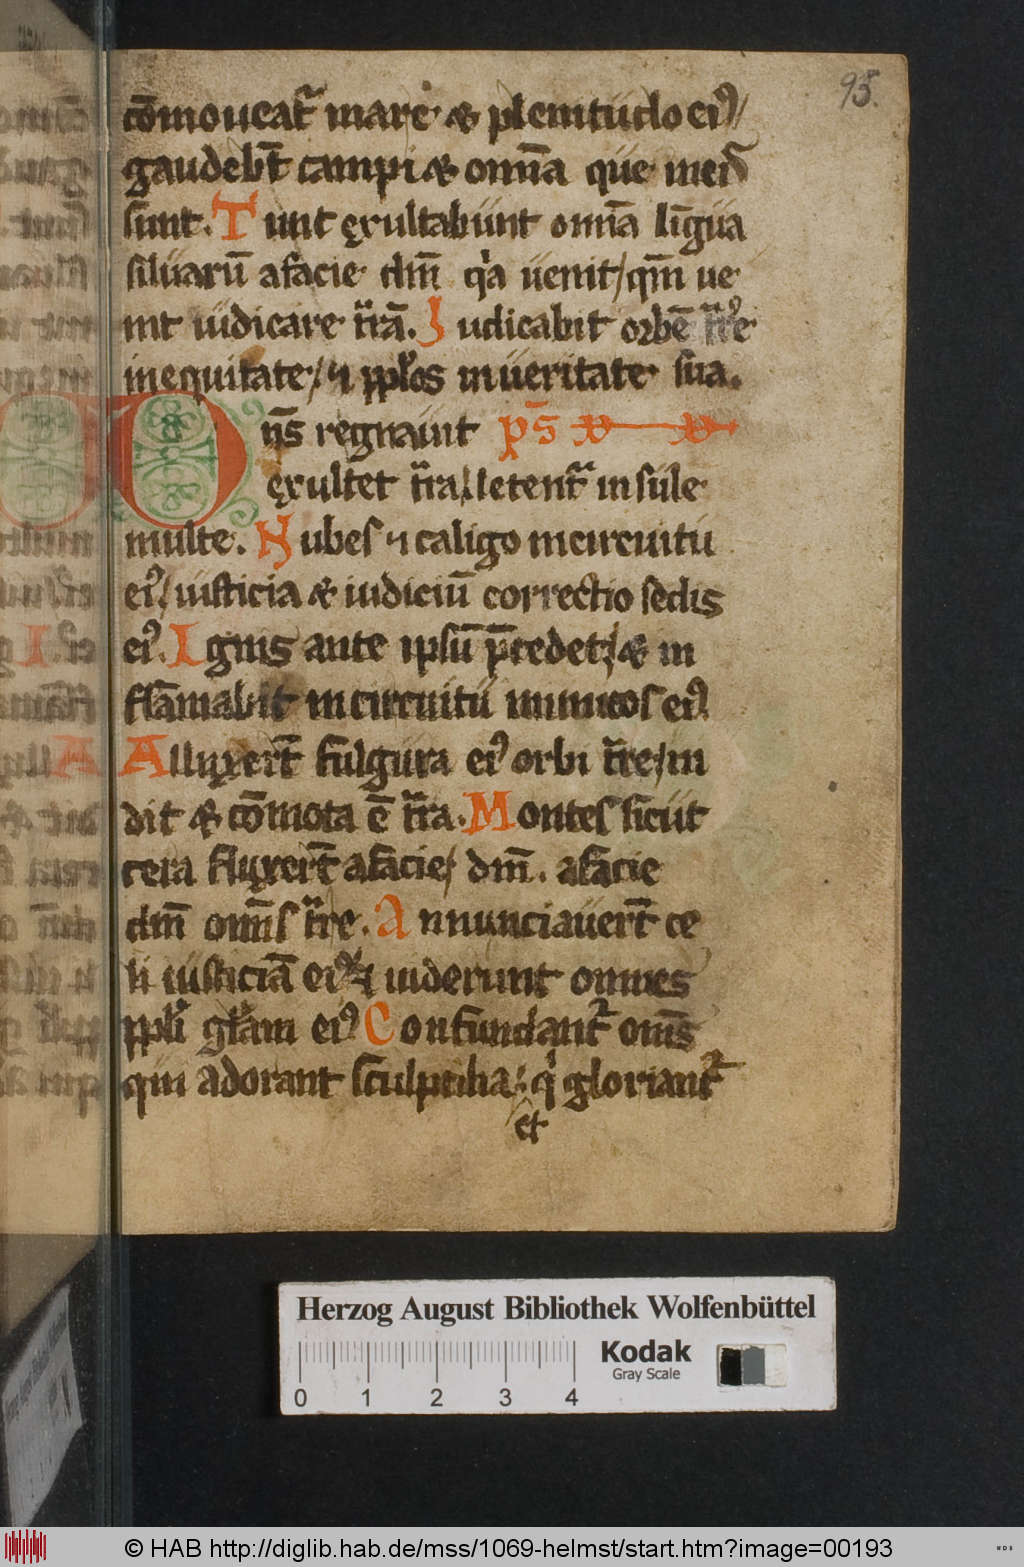 95.
c̄omoueat᷑ mare ⁊ plenitudo ei⁹/
gaudeb̄t campi ⁊ om̄ia que in ei᷑
sunt. Tunc ęxultabunt om̄ia lı̄gua
siluarū afacie dn̄i q̇a uenit/ qm̄ ue
nit iudicare t᷑rā. Iudicabit orbē t᷑re
inequitate/ ⁊ pp̄los inueritate sua.
Dn̄s regnauit ps̄
ęxultet t᷑ra/ letent᷑ insule
multe. Nubes ⁊ caligo incircuitu
ei⁹/ iusticia ⁊ iudiciū correctio sedis
ei⁹. Ignis ante ipsū p̄cedet/ ⁊ in
flāmabit incircuitu inimicos ei⁹
Alluxer̄t fulgura ei⁹ orbi t᷑re/ ui
dit ⁊ c̄omota ē t᷑ra. Montes sicut
cera fluxer̄t afacie/ dn̄i. afacie
dn̄i om̄is t᷑re. Annunciauer̄t ce
li iusticiā ei⁹ ⁊ uiderunt omnes
pp̄li gl̄am ei⁹ Confundant᷑ om̄s
qui adorant sculptilia: q̇ gloriant᷑
et
Herzog August Bibliothek Wolfenbüttel
Kodak
Gray Scale
0 1 2 3 4
© HAB http://diglib.hab.de/mss/1069-helmst/start.htm?image=00193